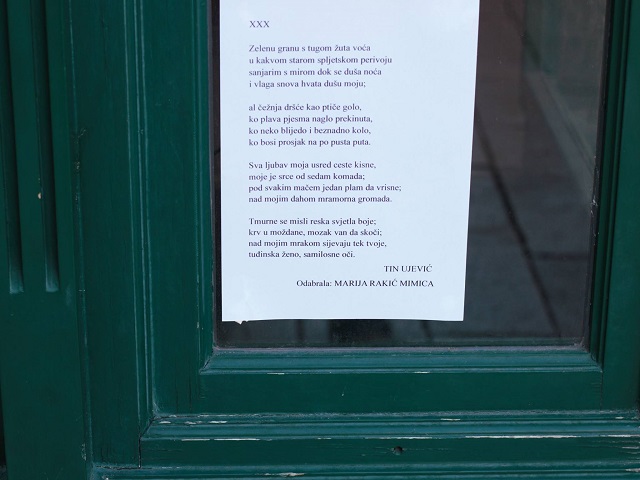 XXX
Zelenu granu s tugom žuta voća
u kakvom starom spljetskom perivoju
sanjarim s mirom dok se duša noća
i vlaga snova hvata dušu moju;
al čežnja dršće kao ptiče golo,
ko plava pjesma naglo prekinuta,
ko neko blijedo i beznadno kolo,
ko bosi prosjak na po pusta puta.
Sva ljubav moja usred ceste kisne,
moje je srce od sedam komada;
pod svakim mačem jedan plam da vrisne;
nad mojim dahom mramorna gromada.
Tmurne se misli reska svjetla boje;
krv u moždane, mozak van da skoči;
nad mojim mrakom sijevaju tek tvoje,
tuđinska ženo, samilosne oči.
TIN UJEVIĆ
Odabrala: MARIJA RAKIĆ MIMICA